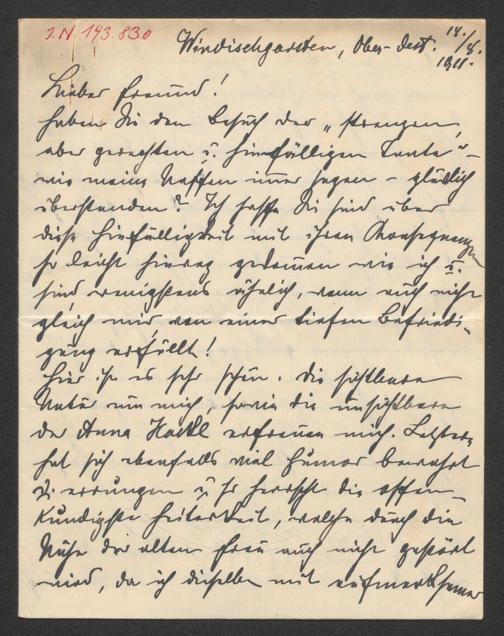 I.N. 193.830
Windischgarsten, Ober-Oest. 14./8.
1911.
Lieber Freund!
Haben Sie den Besuch der „strengen,
aber gerechten u. hinfälligen Tante" –
wie meine Neffen immer sagen – glücklich
überstanden? Ich hoffe Sie sind über
diese Hinfälligkeit mit ihren Konsequenzen
so leicht hinweg gekommen wie ich u.
sind wenigstens ähnlich, wenn auch nicht
gleich mir, von einer tiefen Befriedi-
gung erfüllt!
Hier ist es sehr schön. Die sichtbare
Natur um mich sowie die unsichtbare
der Anna Hackl erfreuen mich. Letztere
hat sich ebenfalls viel Humor bewahrt
u. errungen u. so herrscht die offen-
kundigste Heiterkeit, welche durch die
Nähe der alten Frau auch nicht gestört
wird, da ich dieselbe mit aufmerksamer